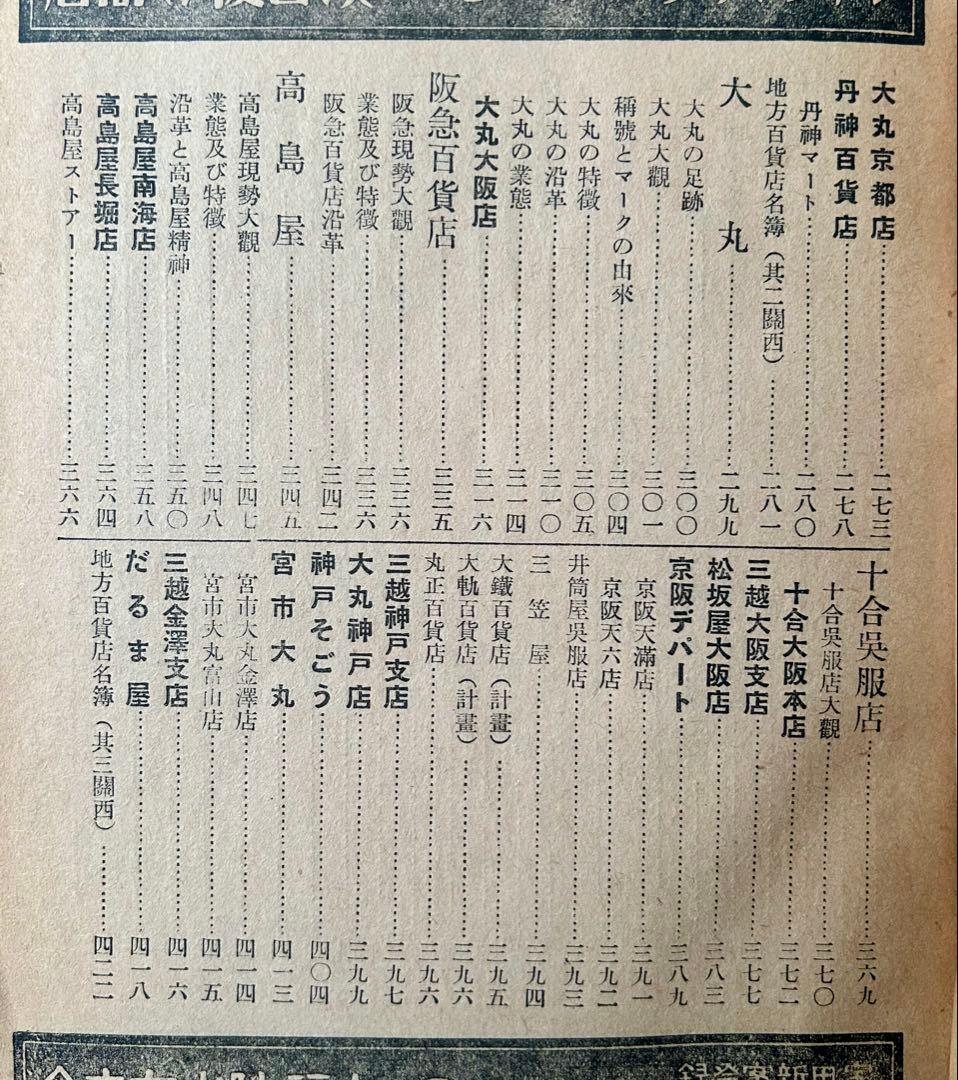 大丸京都店……二七三
丹神百貨店……二七八
丹神マート……二八〇
地方百貨店名簿（其二關西）……二八一
大丸……二九九
大丸の足跡……三〇〇
大丸大觀……三〇一
稱號とマークの由來……三〇四
大丸の特徴……三〇五
大丸の沿革……三一〇
大丸の業態……三一四
大丸大阪店……三一六
阪急百貨店……三三五
阪急現勢大觀……三三六
業態及び特徴……三三六
阪急百貨店沿革……三四二
高島屋……三四五
高島屋現勢大觀……三四七
業態及び特徴……三四八
沿革と高島屋精神……三五〇
高島屋南海店……三五八
高島屋長堀店……三六四
高島屋ストアー……三六六
十合吳服店……三六九
十合吳服店大觀……三七〇
十合大阪本店……三七二
三越大阪支店……三七七
松坂屋大阪店……三八三
京阪デパート……三八九
京阪天滿店……三九一
京阪天六店……三九二
井筒屋吳服店……三九三
三笠屋……三九四
大鐵百貨店（計畫）……三九五
大軌百貨店（計畫）……三九六
丸正百貨店……三九六
三越神戸支店……三九七
大丸神戸店……三九九
神戸そごう……四〇四
宮市大丸……四一三
宮市大丸金澤店……四一四
宮市大丸富山店……四一五
三越金澤支店……四一六
だるま屋……四一八
地方百貨店名簿（其三關西）……四二二